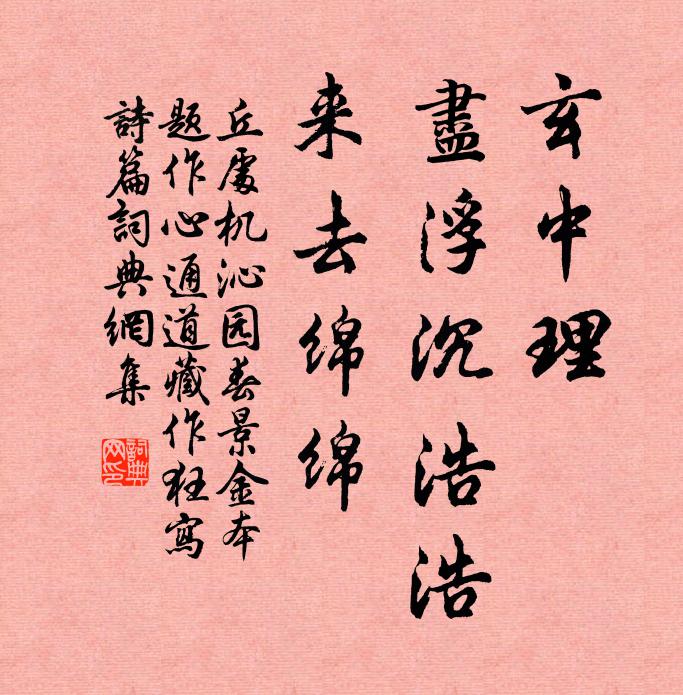 玄中理
盡浮沉浩浩
来去绵绵
丘處机沁园春景金本
题作心通道藏作狂寫
詩篇詞典網集
詞典网印